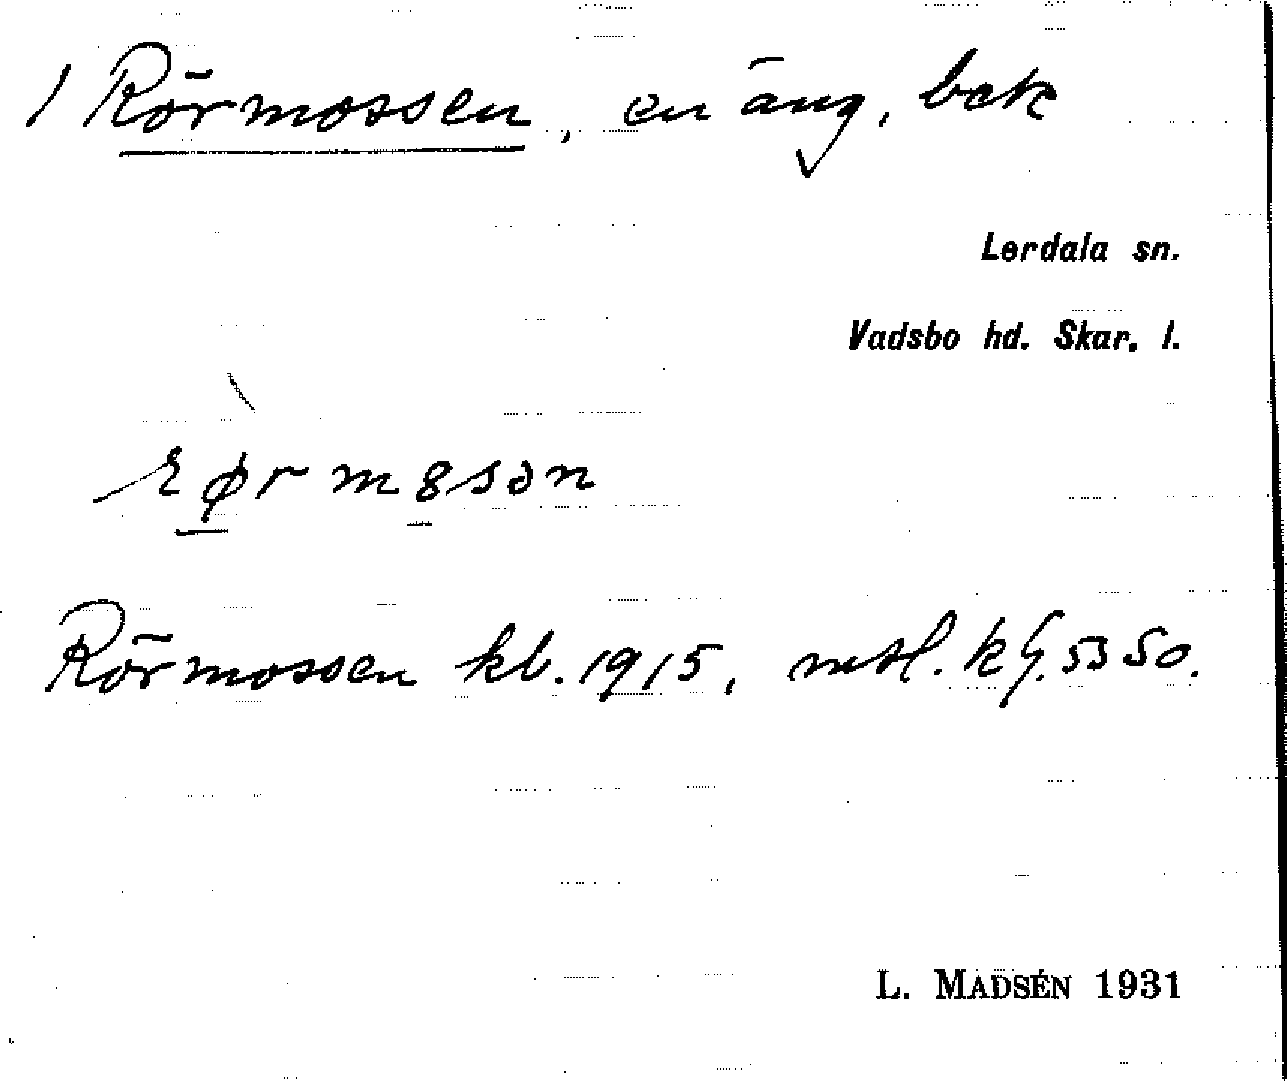 1 Rörmossen, en äng, bek
Lerdala sn.
Vadsbo hd. Skar. l.
rør m8sən
Rörmossen kb. 1915, mtl. kf. 5350.
L. MADSÉN 1931